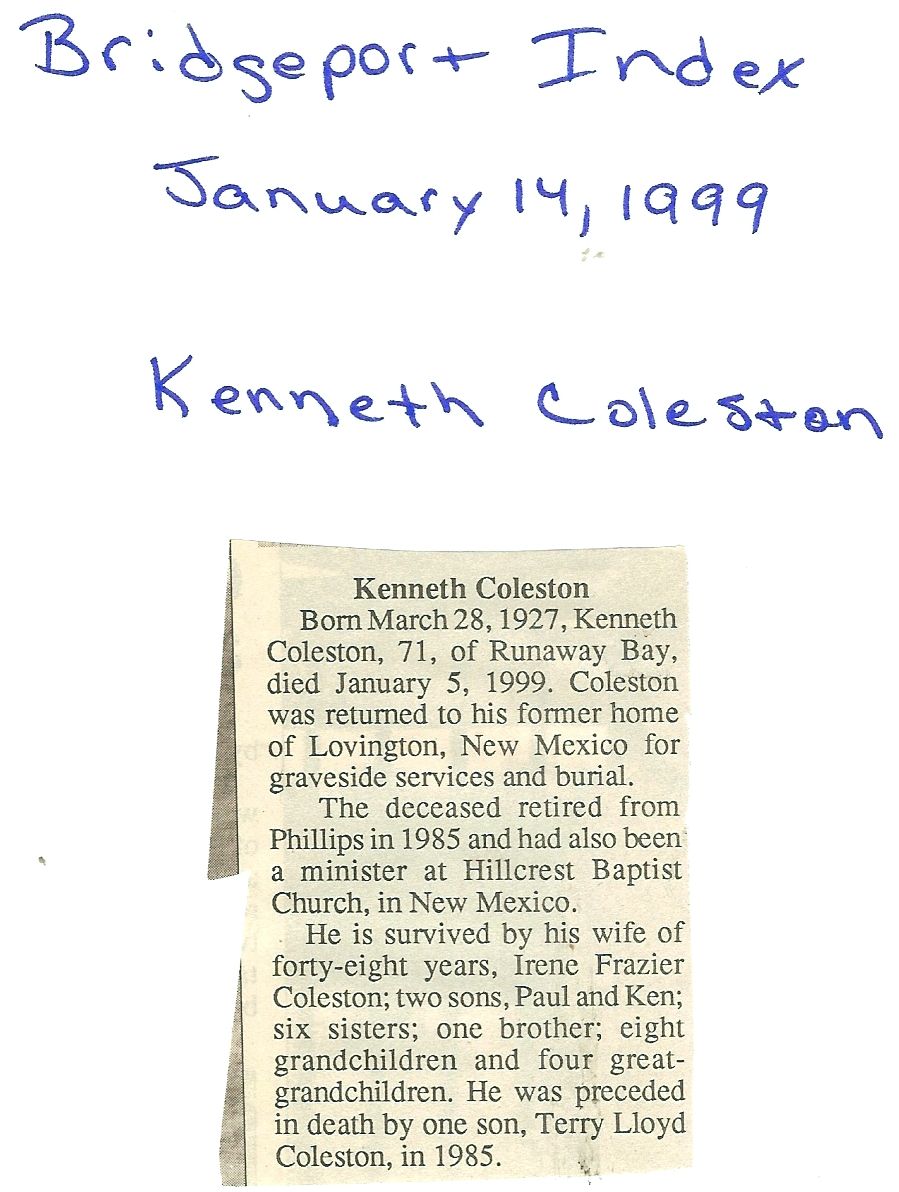 Bridgeport Index
January 14, 1999
Kenneth Coleston
Kenneth Coleston
Born March 28, 1927, Kenneth
Coleston, 71, of Runaway Bay,
died January 5, 1999. Coleston
was returned to his former home
of Lovington, New Mexico for
graveside services and burial.
The deceased retired from
Phillips in 1985 and had also been
a minister at Hillcrest Baptist
Church, in New Mexico.
He is survived by his wife of
forty-eight years, Irene Frazier
Coleston; two sons, Paul and Ken;
six sisters; one brother; eight
grandchildren and four great-
grandchildren. He was preceded
in death by one son, Terry Lloyd
Coleston, in 1985.